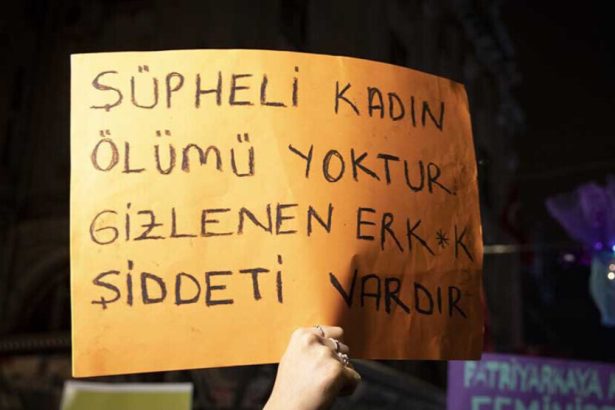 ŞÜPHELİ KADIN
ÖLÜMÜ YOKTUR
GİZLENEN ERK*K
ŞİDDETİ VARDIR
PATRİYARKAYA
FEMİNİST